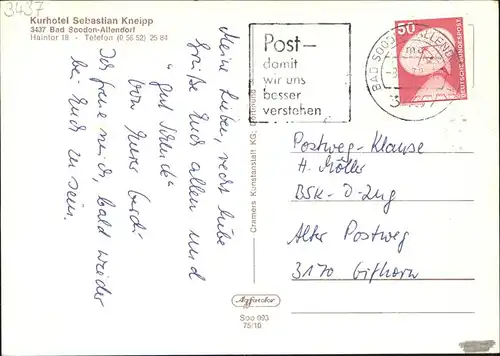 3437
Kurhotel Sebastian Kneipp
3437 Bad Sooden-Allendorf
Haintor 18 - Telefon (0 56 52) 25 84
Meine Lieben, recht liebe
Grüße Euch allen und
"gut Schluck"
von Eurer Gerdi
Ich freue mich, bald wieder
bei Euch zu sein.
Cramers Kunstanstalt KG, Dortmund
Agfacolor
Soo 093
75/10
Post-
damit
wir uns
besser
verstehen
BAD SOODEN-ALLENDORF
50
DEUTSCHE BUNDESPOST
Postweg-Klause
H. Möller
BSK-D-Zug
Alter Postweg
3170 Gifhorn